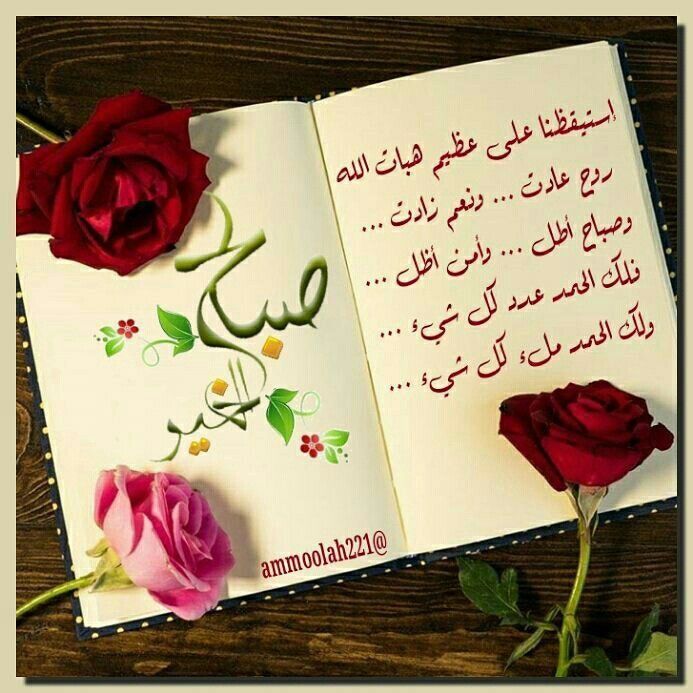 إستيقظنا على عظيم هبات الله
روح عادت ... ونعم زادت ...
وصباح أطل ... وأمن أظل ...
فلك الحمد عدد كل شيء ...
ولك الحمد ملء كل شيء ...
صباح
الخير
ammoolah221@